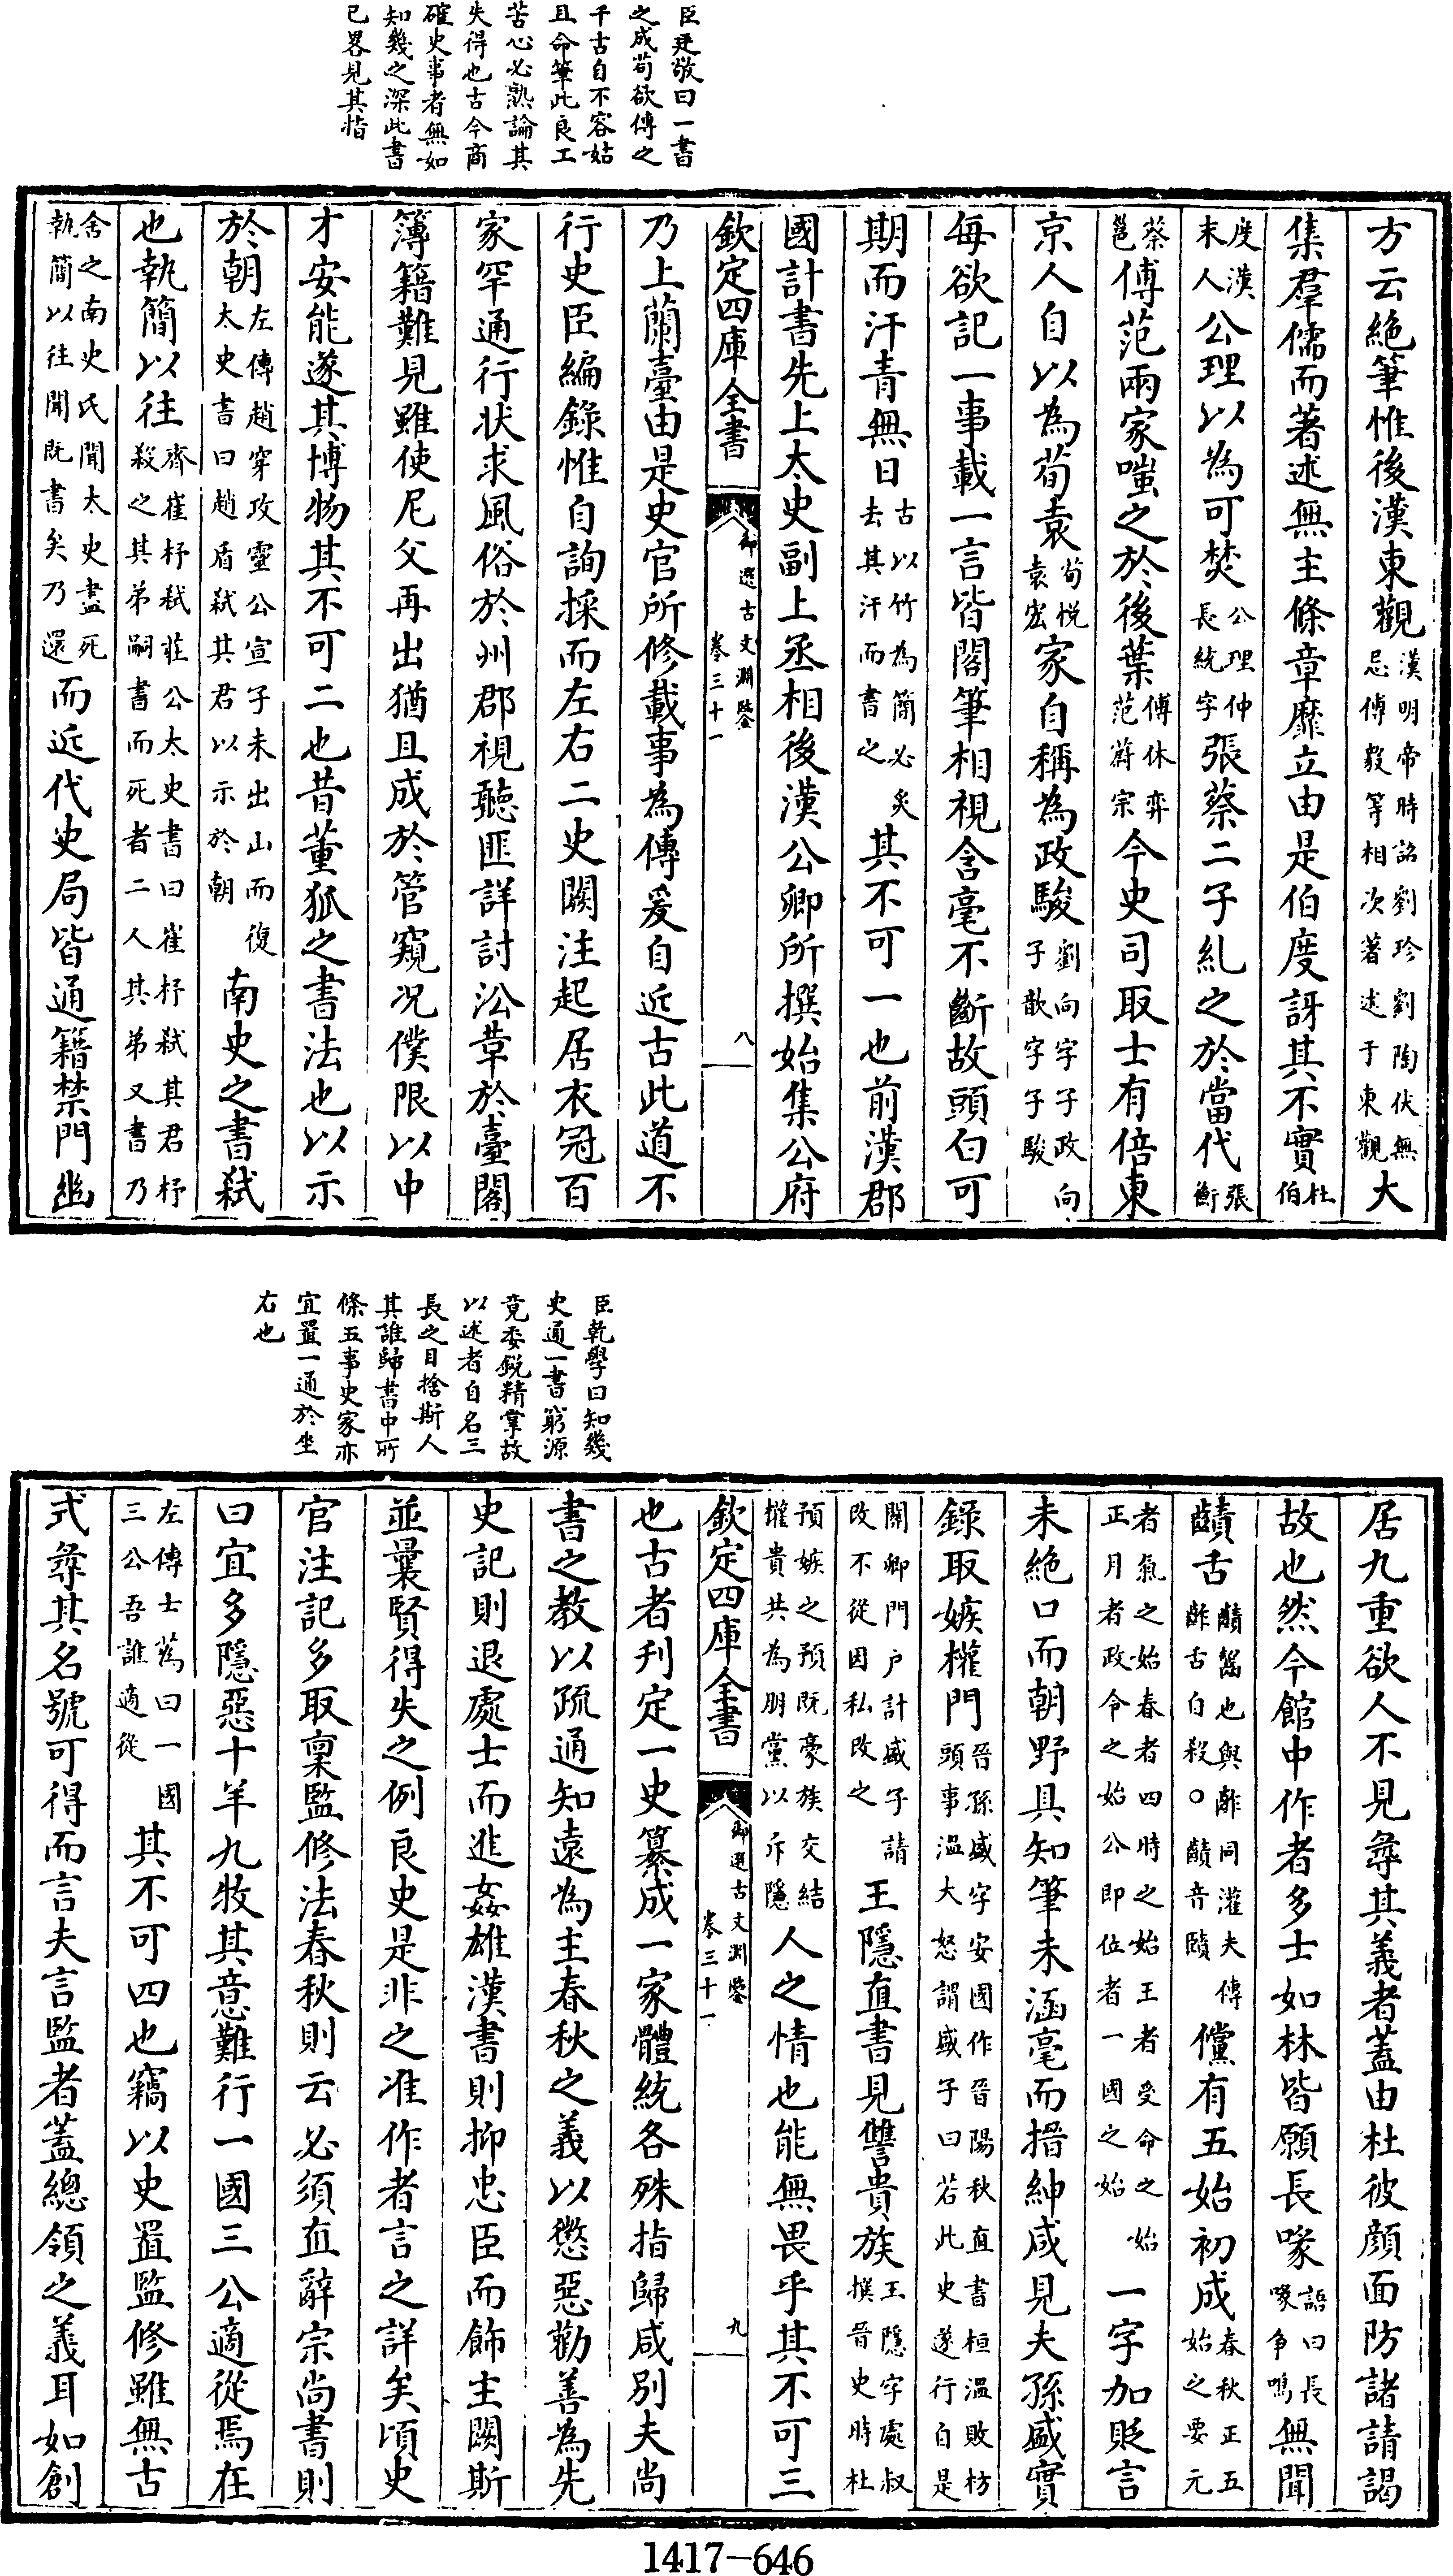 臣廷敬曰一書
之成苟欲傳之
千古自不容姑
且命筆此良工
苦心必熟論其
失得也古今商
確史事者無如
知幾之深此書
已畧見其指
方云絶筆惟後漢東觀漢明帝時詔劉珍劉陶伏無忌傅毅等相次著述于東觀大
集羣儒而著述無主條章靡立由是伯度訝其不實杜伯
度漢末人公理以為可焚公理仲長統字張蔡二子糺之於當代張衡
蔡邕傅范兩家嗤之於後葉傅休弈范蔚宗今史司取士有倍東
京人自以為荀袁荀悦袁宏家自稱為政駿劉向字子政向子歆字子駿
每欲記一事載一言皆閣筆相視含毫不斷故頭白可
期而汗青無日古以竹為簡必炙去其汗而書之其不可一也前漢郡
國計書先上太史副上丞相後漢公卿所撰始集公府
欽定四庫全書
御選古文淵鑒
卷三十一
八
乃上蘭臺由是史官所修載事為傳爰自近古此道不
行史臣編錄惟自詢採而左右二史闕注起居衣冠百
家罕通行狀求風俗於州郡視聽匪詳討沿革於臺閣
簿籍難見雖使尼父再出猶且成於管窺况僕限以中
才安能遂其博物其不可二也昔董狐之書法也以示
於朝左傳趙穿攻靈公宣子未出山而復太史書曰趙盾弑其君以示於朝南史之書弑
也執簡以往齊崔杼弑莊公太史書曰崔杼弑其君杼殺之其弟嗣書而死者二人其弟又書乃
舍之南史氏聞太史盡死執簡以往聞既書矣乃還而近代史局皆通籍禁門幽
臣乾學曰知幾
史通一書窮源
竟委鋭精掌故
以述者自名三
長之目捨斯人
其誰歸書中所
條五事史家亦
宜置一通於坐
右也
居九重欲人不見尋其義者蓋由杜彼顔面防諸請謁
故也然今館中作者多士如林皆願長喙語曰長喙争鳴無聞
齰舌齰齧也與齚同灌夫傳齚舌自殺○齰音賾儻有五始初成春秋正五始之要元
者氣之始春者四時之始王者受命之始正月者政令之始公即位者一國之始一字加貶言
未絶口而朝野具知筆未涵毫而搢紳咸見夫孫盛實
錄取嫉權門晉孫盛字安國作晉陽秋直書桓温敗枋頭事温大怒謂盛子曰若此史遂行自是
關卿門户計盛子請改不從因私改之王隱直書見讐貴族王隱字處叔撰晉史時杜
預嫉之預既豪族交結權貴共為朋黨以斥隱人之情也能無畏乎其不可三
欽定四庫全書
御選古文淵鑒
卷三十一
九
也古者刋定一史纂成一家體統各殊指歸咸別夫尚
書之教以疏通知遠為主春秋之義以懲惡勸善為先
史記則退處士而進姦雄漢書則抑忠臣而飾主闕斯
並曩賢得失之例良史是非之准作者言之詳矣頃史
官注記多取稟監修法春秋則云必須直辭宗尚書則
曰宜多隱惡十羊九牧其意難行一國三公適從焉在
左傳士蔿曰一國三公吾誰適從其不可四也竊以史置監修雖無古
式尋其名號可得而言夫言監者蓋總領之義耳如創
1417-646